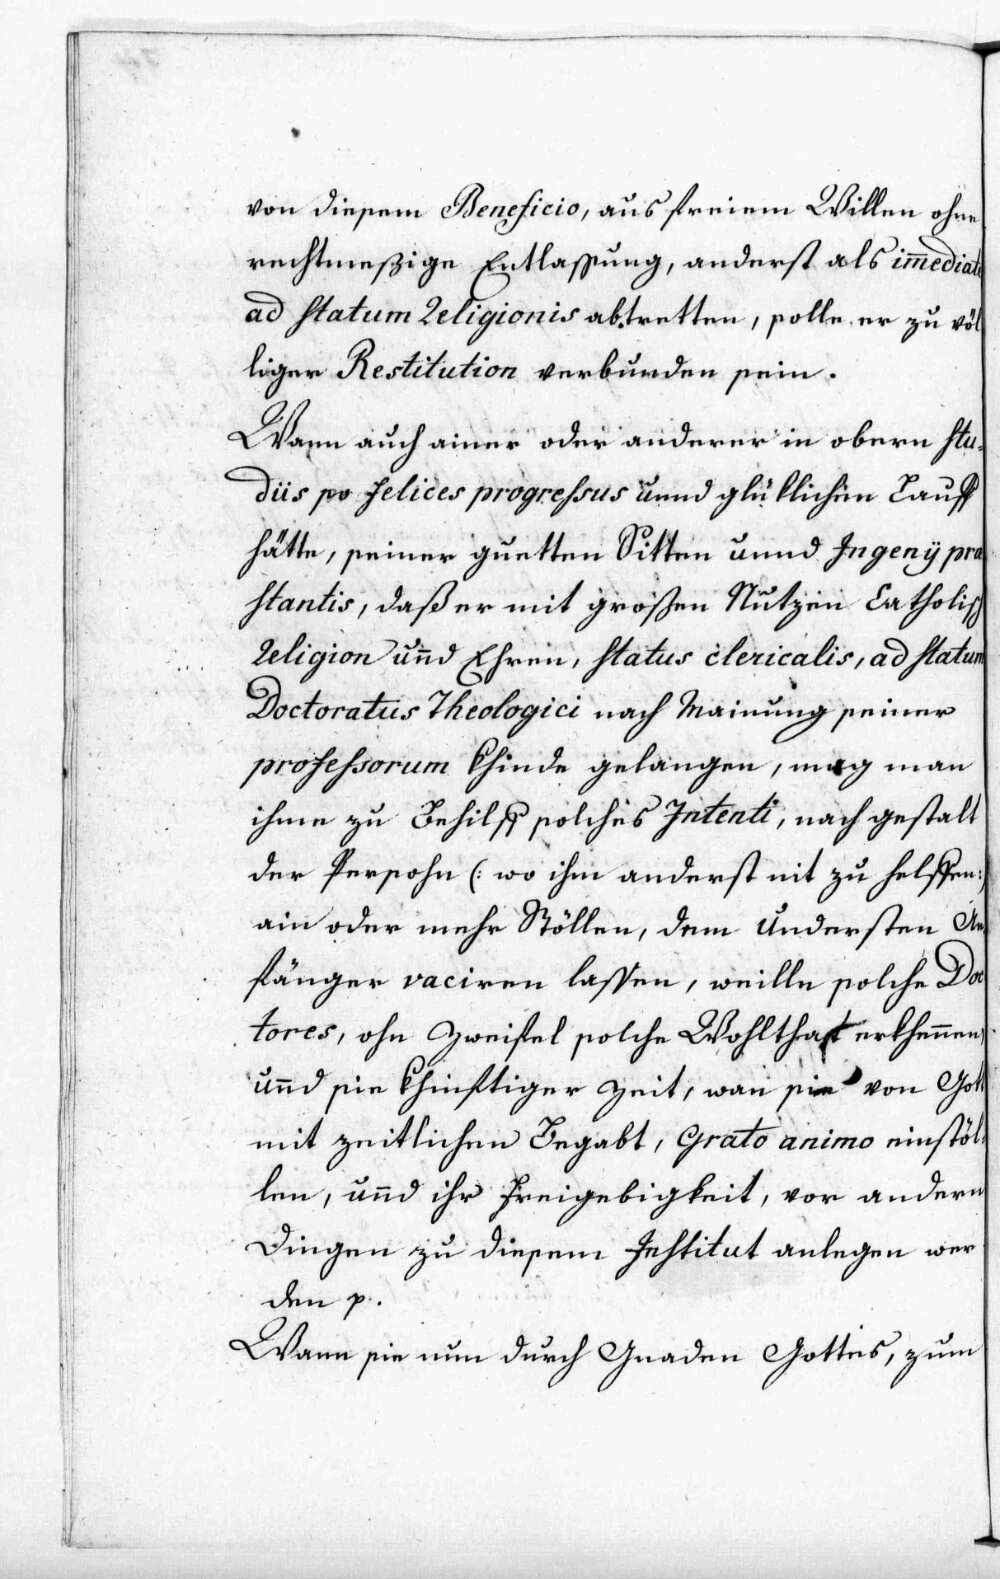 von diesem Beneficio, aus freiem Willen ohne
rechtmeßige Entlassung, anderst als im̅ediate
ad statum Religionis abtretten, solle er zu völ
liger Restitution verbunden sein.
Wann auch ainer oder anderer in obern stu-
diis so felices progressus unnd glüklichen Lauff
hätte, seiner guetten Sitten unnd Ingenÿ præ
stantis, daß er mit großen Nutzen Catholisch
Religion un̅d Ehren, status clericalis, ad statum
Doctoratus Theologici nach Mainung seiner
professorum khinde gelangen, mag man
ihme zu Behilff solches Intenti, nach gestalt
der Persohn (: wo ihm anderst nit zu helffen:)
ain oder mehr Stöllen, dem Understen An
fänger vaciren lassen, weille solche Doc
tores, ohn Zweifel solche Wohlthat erkhen̅en,
un̅d sie khinftiger Zeit, wan sie von Gott
mit zeitlichen Begabt, Grato animo einstöl-
len, un̅d ihr Freigebigkeit, vor andern
Dingen zu diesem Institut anlegen wer
den p.
Wann sie nun durch Gnaden Gottes, zum